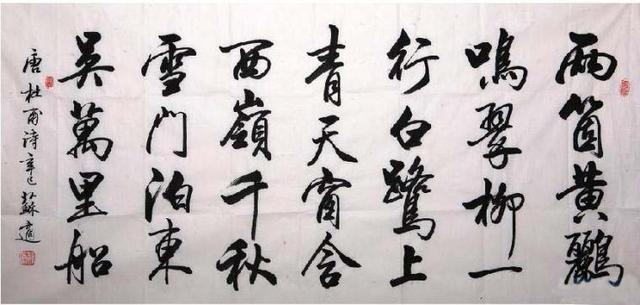 兩箇黃鸝
鳴翠柳一
行白鷺上
青天窗含
西嶺千秋
雪門泊東
吳萬里船
唐杜甫詩辛巳蘇適